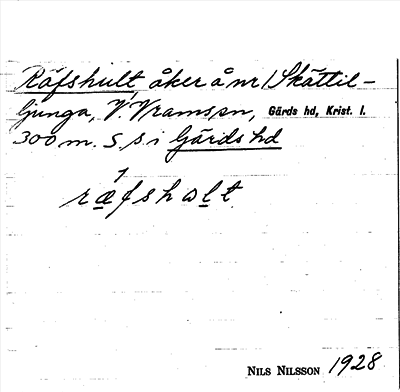 Räfshult, åker å nr 1 Skättil-
ljunga, V. Vram sn, Gärds hd, Krist. l.
300 m. S. s. i Gärds hd
ræfshalt
NILS NILSSON 1928